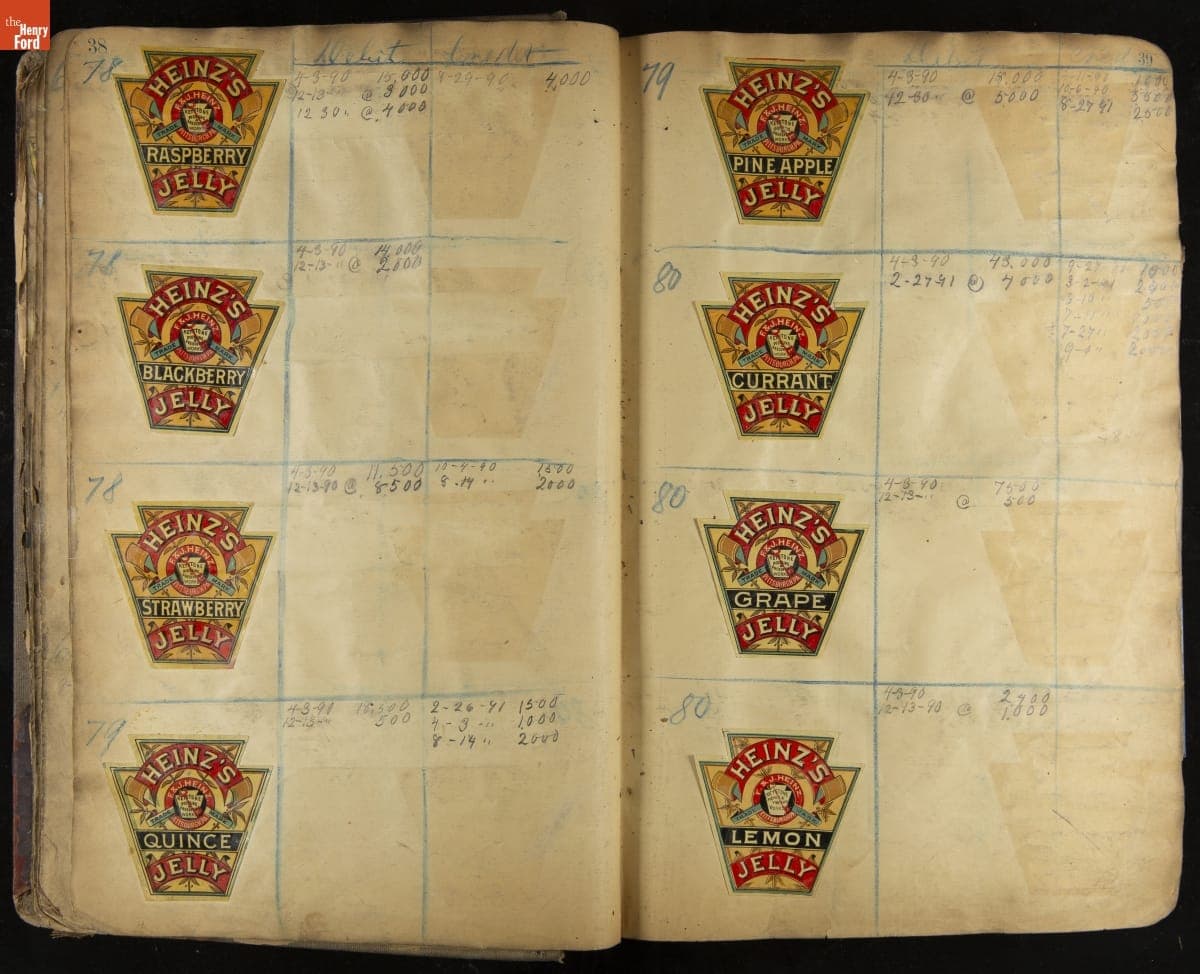 the
Henry
Ford
38
Debit Credit
78
HEINZ'S
F. & J. HEINZ
KEYSTONE
TRADE MARK
PITTSBURGH PA.
RASPBERRY
JELLY
4-3-90 15,000 8-29-90 4,000
12-13-" @ 3000
12 30 " @ 4000
78
HEINZ'S
F. & J. HEINZ
KEYSTONE
TRADE MARK
PITTSBURGH PA.
BLACKBERRY
JELLY
4-3-90 14,000
12-13-" @ 2000
78
HEINZ'S
F. & J. HEINZ
KEYSTONE
TRADE MARK
PITTSBURGH PA.
STRAWBERRY
JELLY
4-3-90 11,500 10-4-90 1500
12-13-90 @ 8500 8-14 " 2000
79
HEINZ'S
F. & J. HEINZ
KEYSTONE
TRADE MARK
PITTSBURGH PA.
QUINCE
JELLY
4-3-90 15,500 2-26-91 1500
12-13-" 500 4-3-" 1,000
8-14 " 2000
39
Debit
79
HEINZ'S
F. & J. HEINZ
KEYSTONE
TRADE MARK
PITTSBURGH PA.
PINE APPLE
JELLY
4-3-90
12-30 " @ 5000
8-27-91 2500
80
HEINZ'S
F. & J. HEINZ
KEYSTONE
TRADE MARK
PITTSBURGH PA.
CURRANT
JELLY
4-3-90 43,000
2-27-91 @ 4000
7-27 "
80
HEINZ'S
F. & J. HEINZ
KEYSTONE
TRADE MARK
PITTSBURGH PA.
GRAPE
JELLY
4-3-90 7500
12-13-" @ 500
80
HEINZ'S
F. & J. HEINZ
KEYSTONE
TRADE MARK
PITTSBURGH PA.
LEMON
JELLY
4-3-90 2,400
12-13-90 @ 1,000